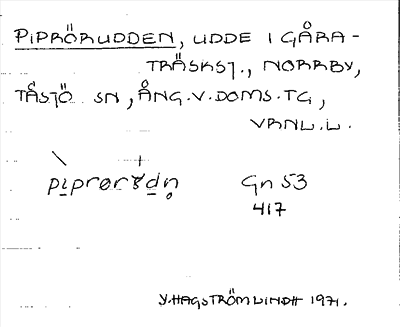 PIPRÖRUDDEN, UDDE I GÅRA-
TRÄSKSJ., NORRBY,
TÅSJÖ SN, ÅNG.V.DOMS.TG,
VRNL.L.
Gn 53
417
Y. HAGSTRÖM LINDH 1971.